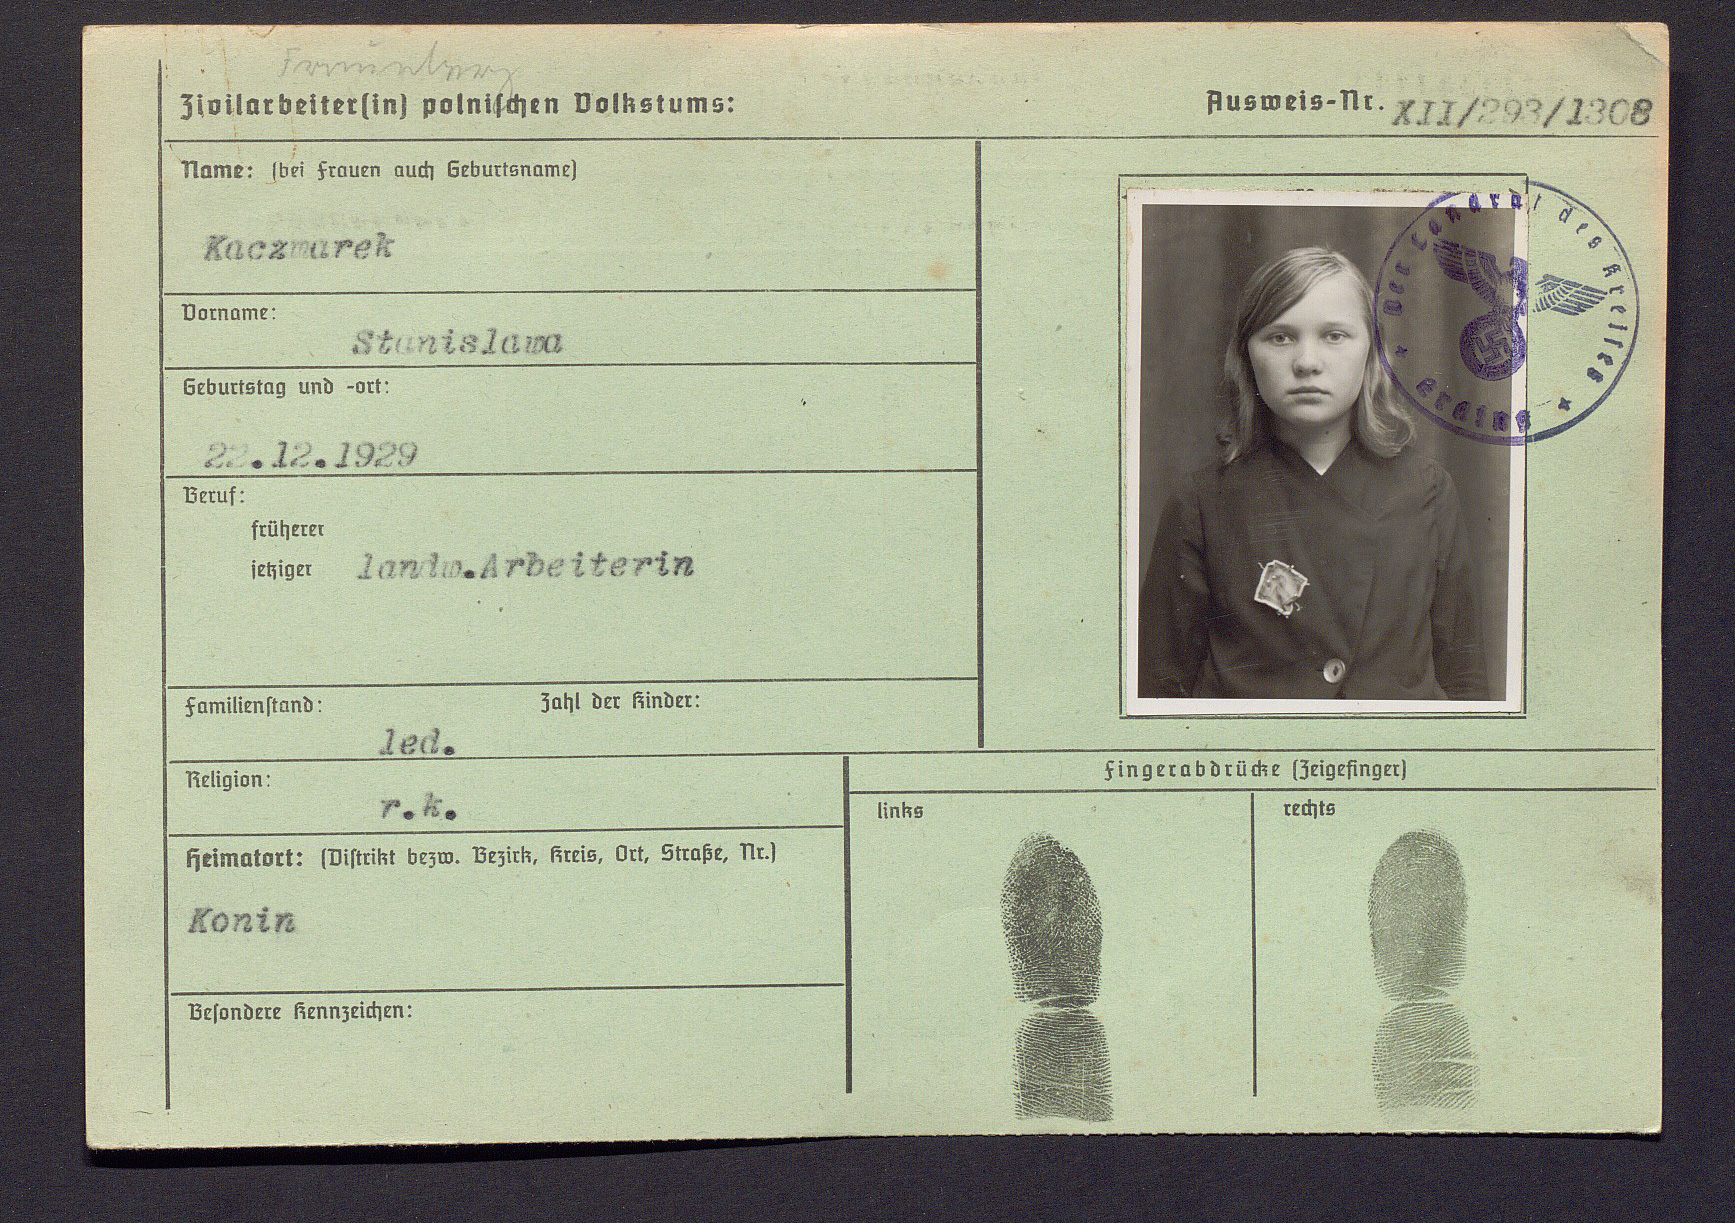 Fraunberg
Zivilarbeiter(in) polnischen Volkstums:
Ausweis-Nr. XII/293/1308
Name: (bei Frauen auch Geburtsname)
Kaczmarek
Vorname:
Stanislawa
Geburtstag und -ort:
22.12.1929
Beruf:
früherer
jetziger landw.Arbeiterin
Familienstand: Zahl der Kinder:
led.
Religion:
r.k.
Heimatort: (Distrikt bezw. Bezirk, Kreis, Ort, Straße, Nr.)
Konin
Besondere Kennzeichen:
Der Landrat des Kreises
Erding
Fingerabdrücke (Zeigefinger)
links rechts